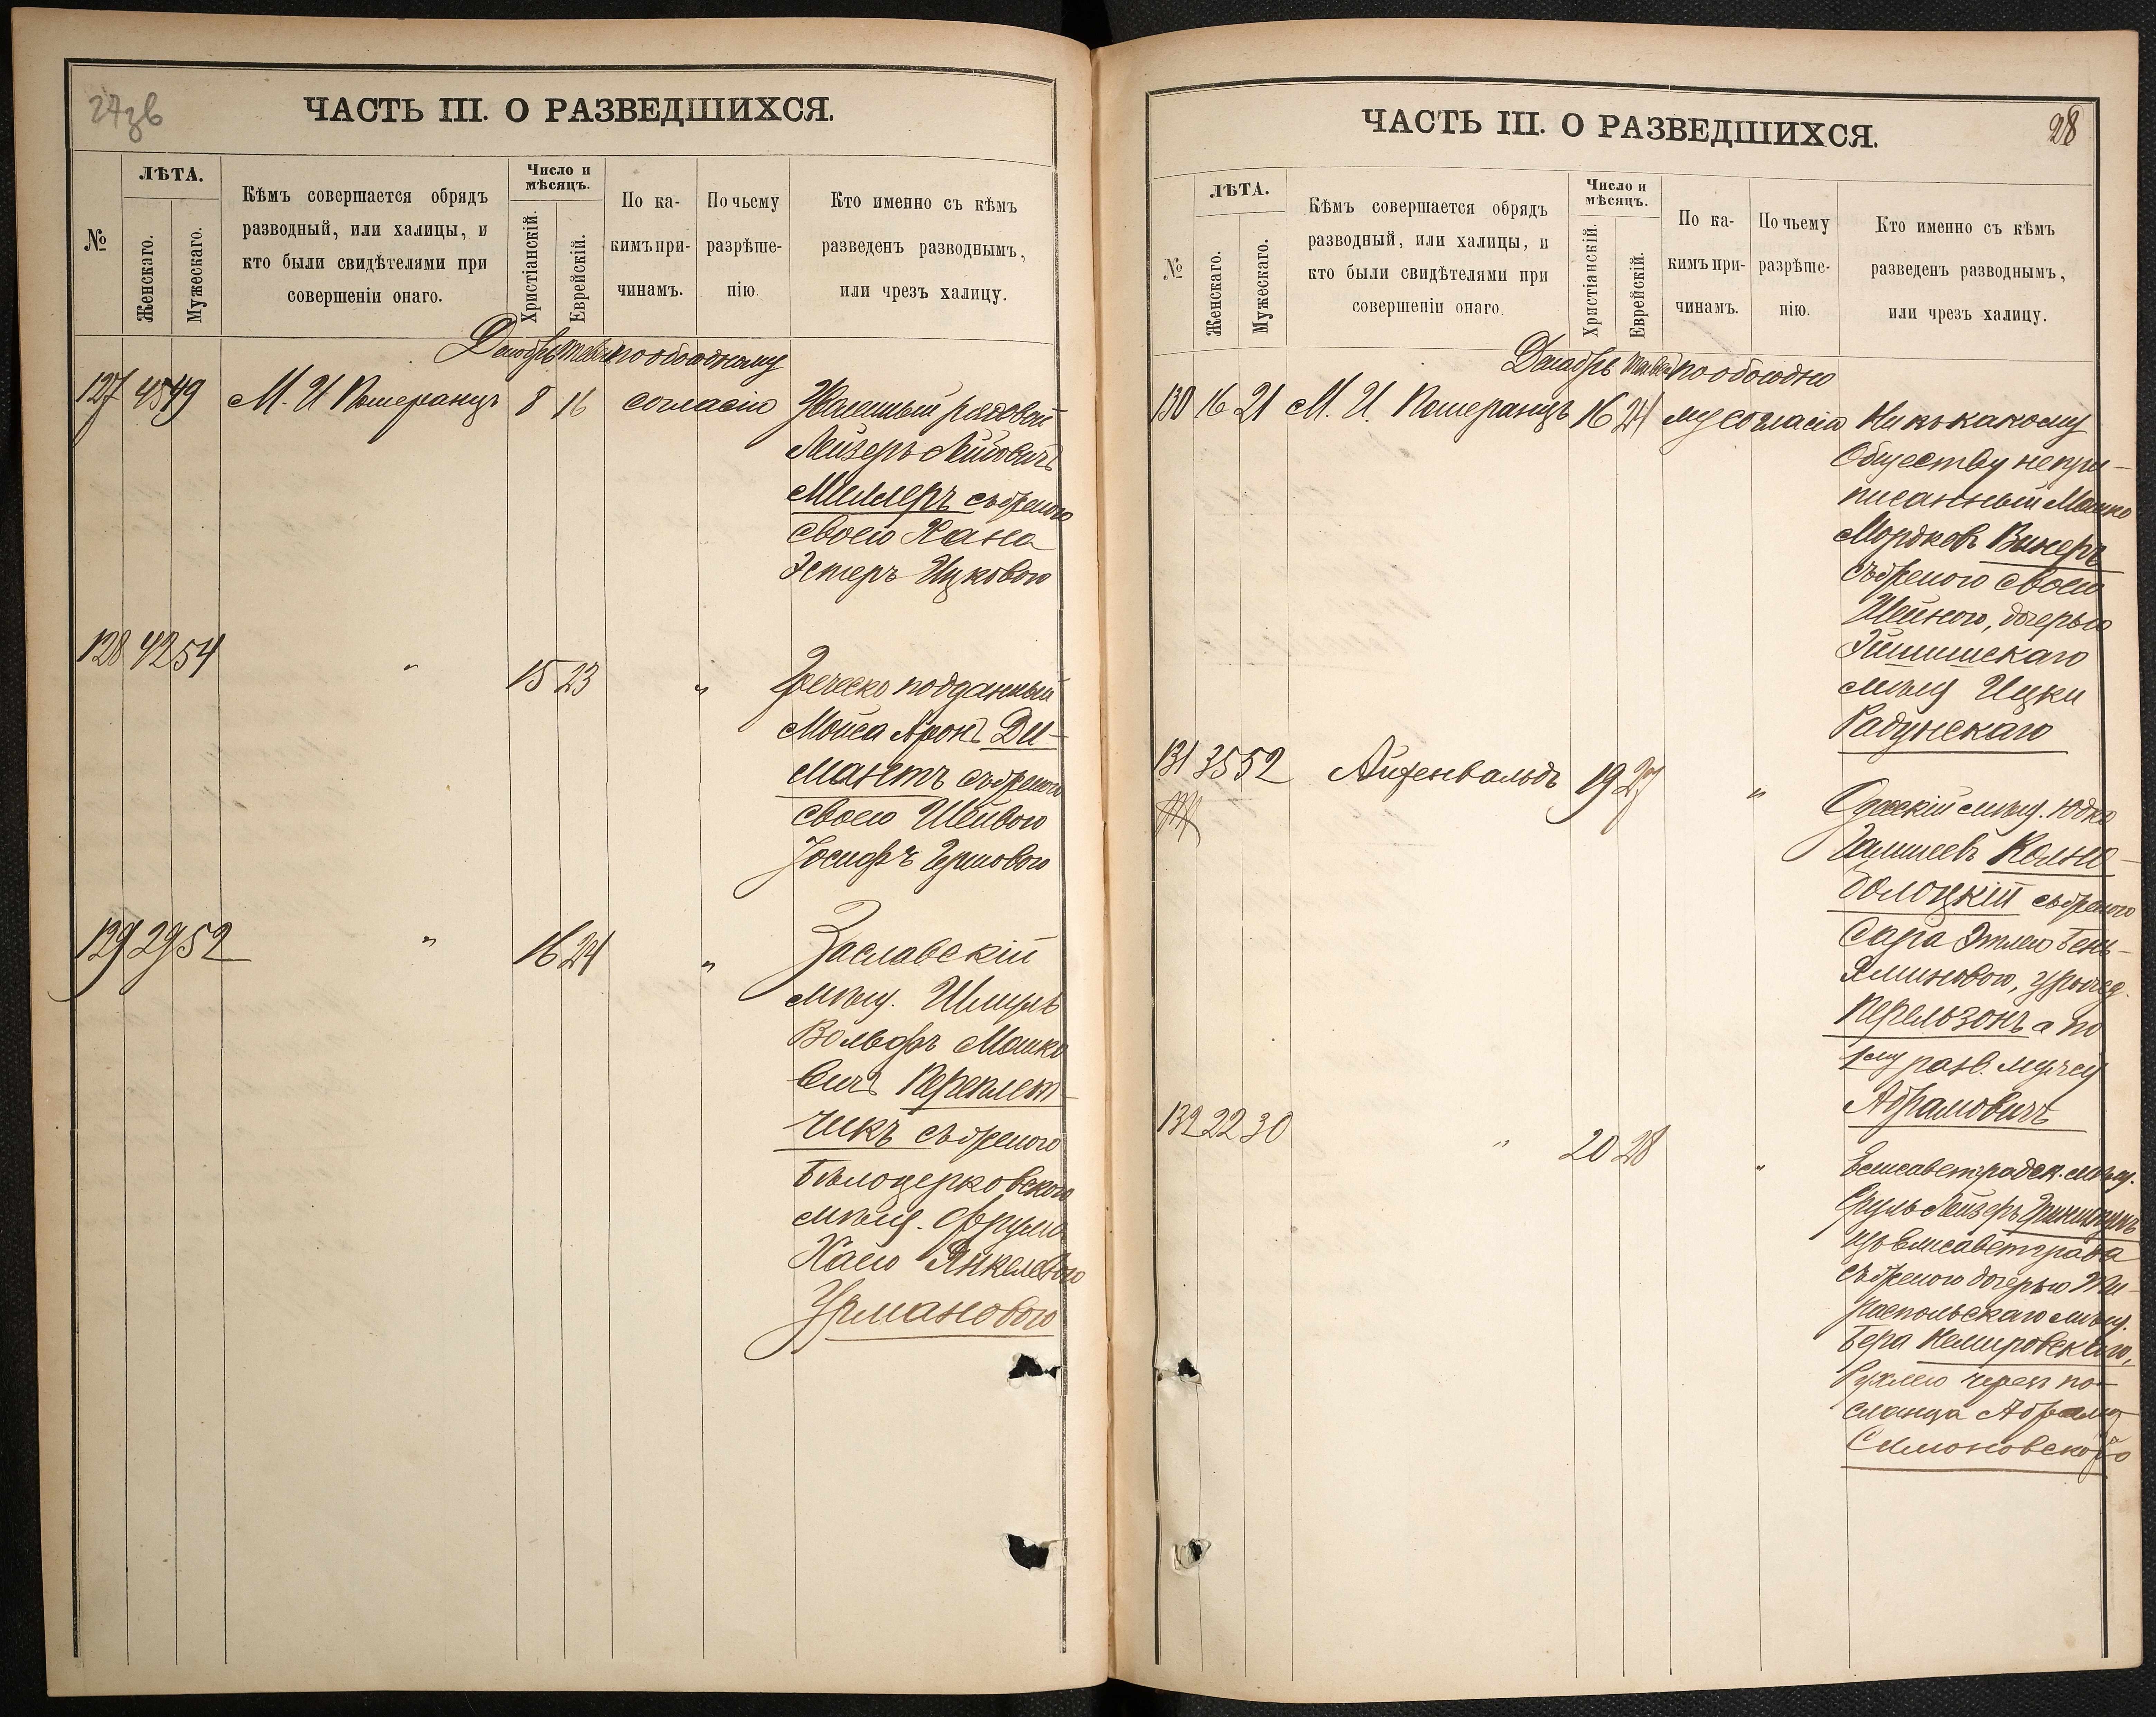 27зв
ЧАСТЬ III. О РАЗВЕДШИХСЯ.
№
ЛѢТА.
Женскаго.
Мужескаго.
Кѣмъ совершается обрядъ
разводный, или халицы, и
кто были свидѣтелями при
совершеніи онаго.
Число и
мѣсяцъ.
Христіанскій.
Еврейскій.
По ка-
кимъ при-
чинамъ.
По чьему
разрѣше-
нію.
Кто именно съ кѣмъ
разведенъ разводнымъ,
или чрезъ халицу.
Декабрь Тевес по обоюдному
127 45 49 М. И Померанцъ 8 16 согласію
рядовой
Лейзеръ Лейбовичъ
Миллеръ съ женою
своею Хана
Эстеръ Ицковою
128 42 54 " 15 23 " Греческо подданный
Мойса Аронъ Ди-
мантъ съ женою
своею Шейвою
Іосифъ Гершовою
129 29 52 " 16 24 " Заславскій
мѣщ. Шмуль
Вольфъ Мошко
вичъ Переплет-
чикъ съ женою
Бѣлоцерковскою
мѣщ. Фрума
Хаею Янкелевою
Урмановою
28
ЧАСТЬ III. О РАЗВЕДШИХСЯ.
№
ЛѢТА.
Женскаго.
Мужескаго.
Кѣмъ совершается обрядъ
разводный, или халицы, и
кто были свидѣтелями при
совершеніи онаго.
Число и
мѣсяцъ.
Христіанскій.
Еврейскій.
По ка-
кимъ при-
чинамъ.
По чьему
разрѣше-
нію.
Кто именно съ кѣмъ
разведенъ разводнымъ,
или чрезъ халицу.
Декабрь Тевес по обоюдно
130 16 21 М. И. Померанцъ 16 24 му согласію Ни къ какому
Обществу непри-
писанный Мошко
Мордковъ Винеръ
съ женою своею
Шейною, дочерью
Эйшишскаго
мѣщ Ицки
Радунскаго
131 35 52 Айзенвальдъ 19 27 " Одесскій мѣщ. Юдко
Колно-
болоцкій съ женою
Сара Этлею Бень-
яминовою, урожд.
Перельзонъ а по
1му разв. мужу
Абрамовичъ
132 22 30 " 20 28 " Елисаветградск. мѣщ.
Сруль Лейзеръ
изъ Елисаветграда
съ женою дочерью Ти-
распольскаго мѣщ.
Бера Немировскаго,
Рухлею черезъ по-
сланца Абрама
Симоновскаго